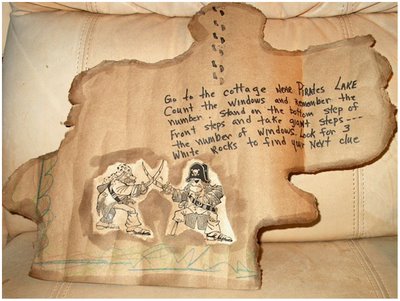 Go to the cottage near Pirates Lake
Count the windows and Remember the
number. Stand on the bottom step of
Front steps and take giant steps---
the number of windows. Look for 3
White Rocks to find your Next clue